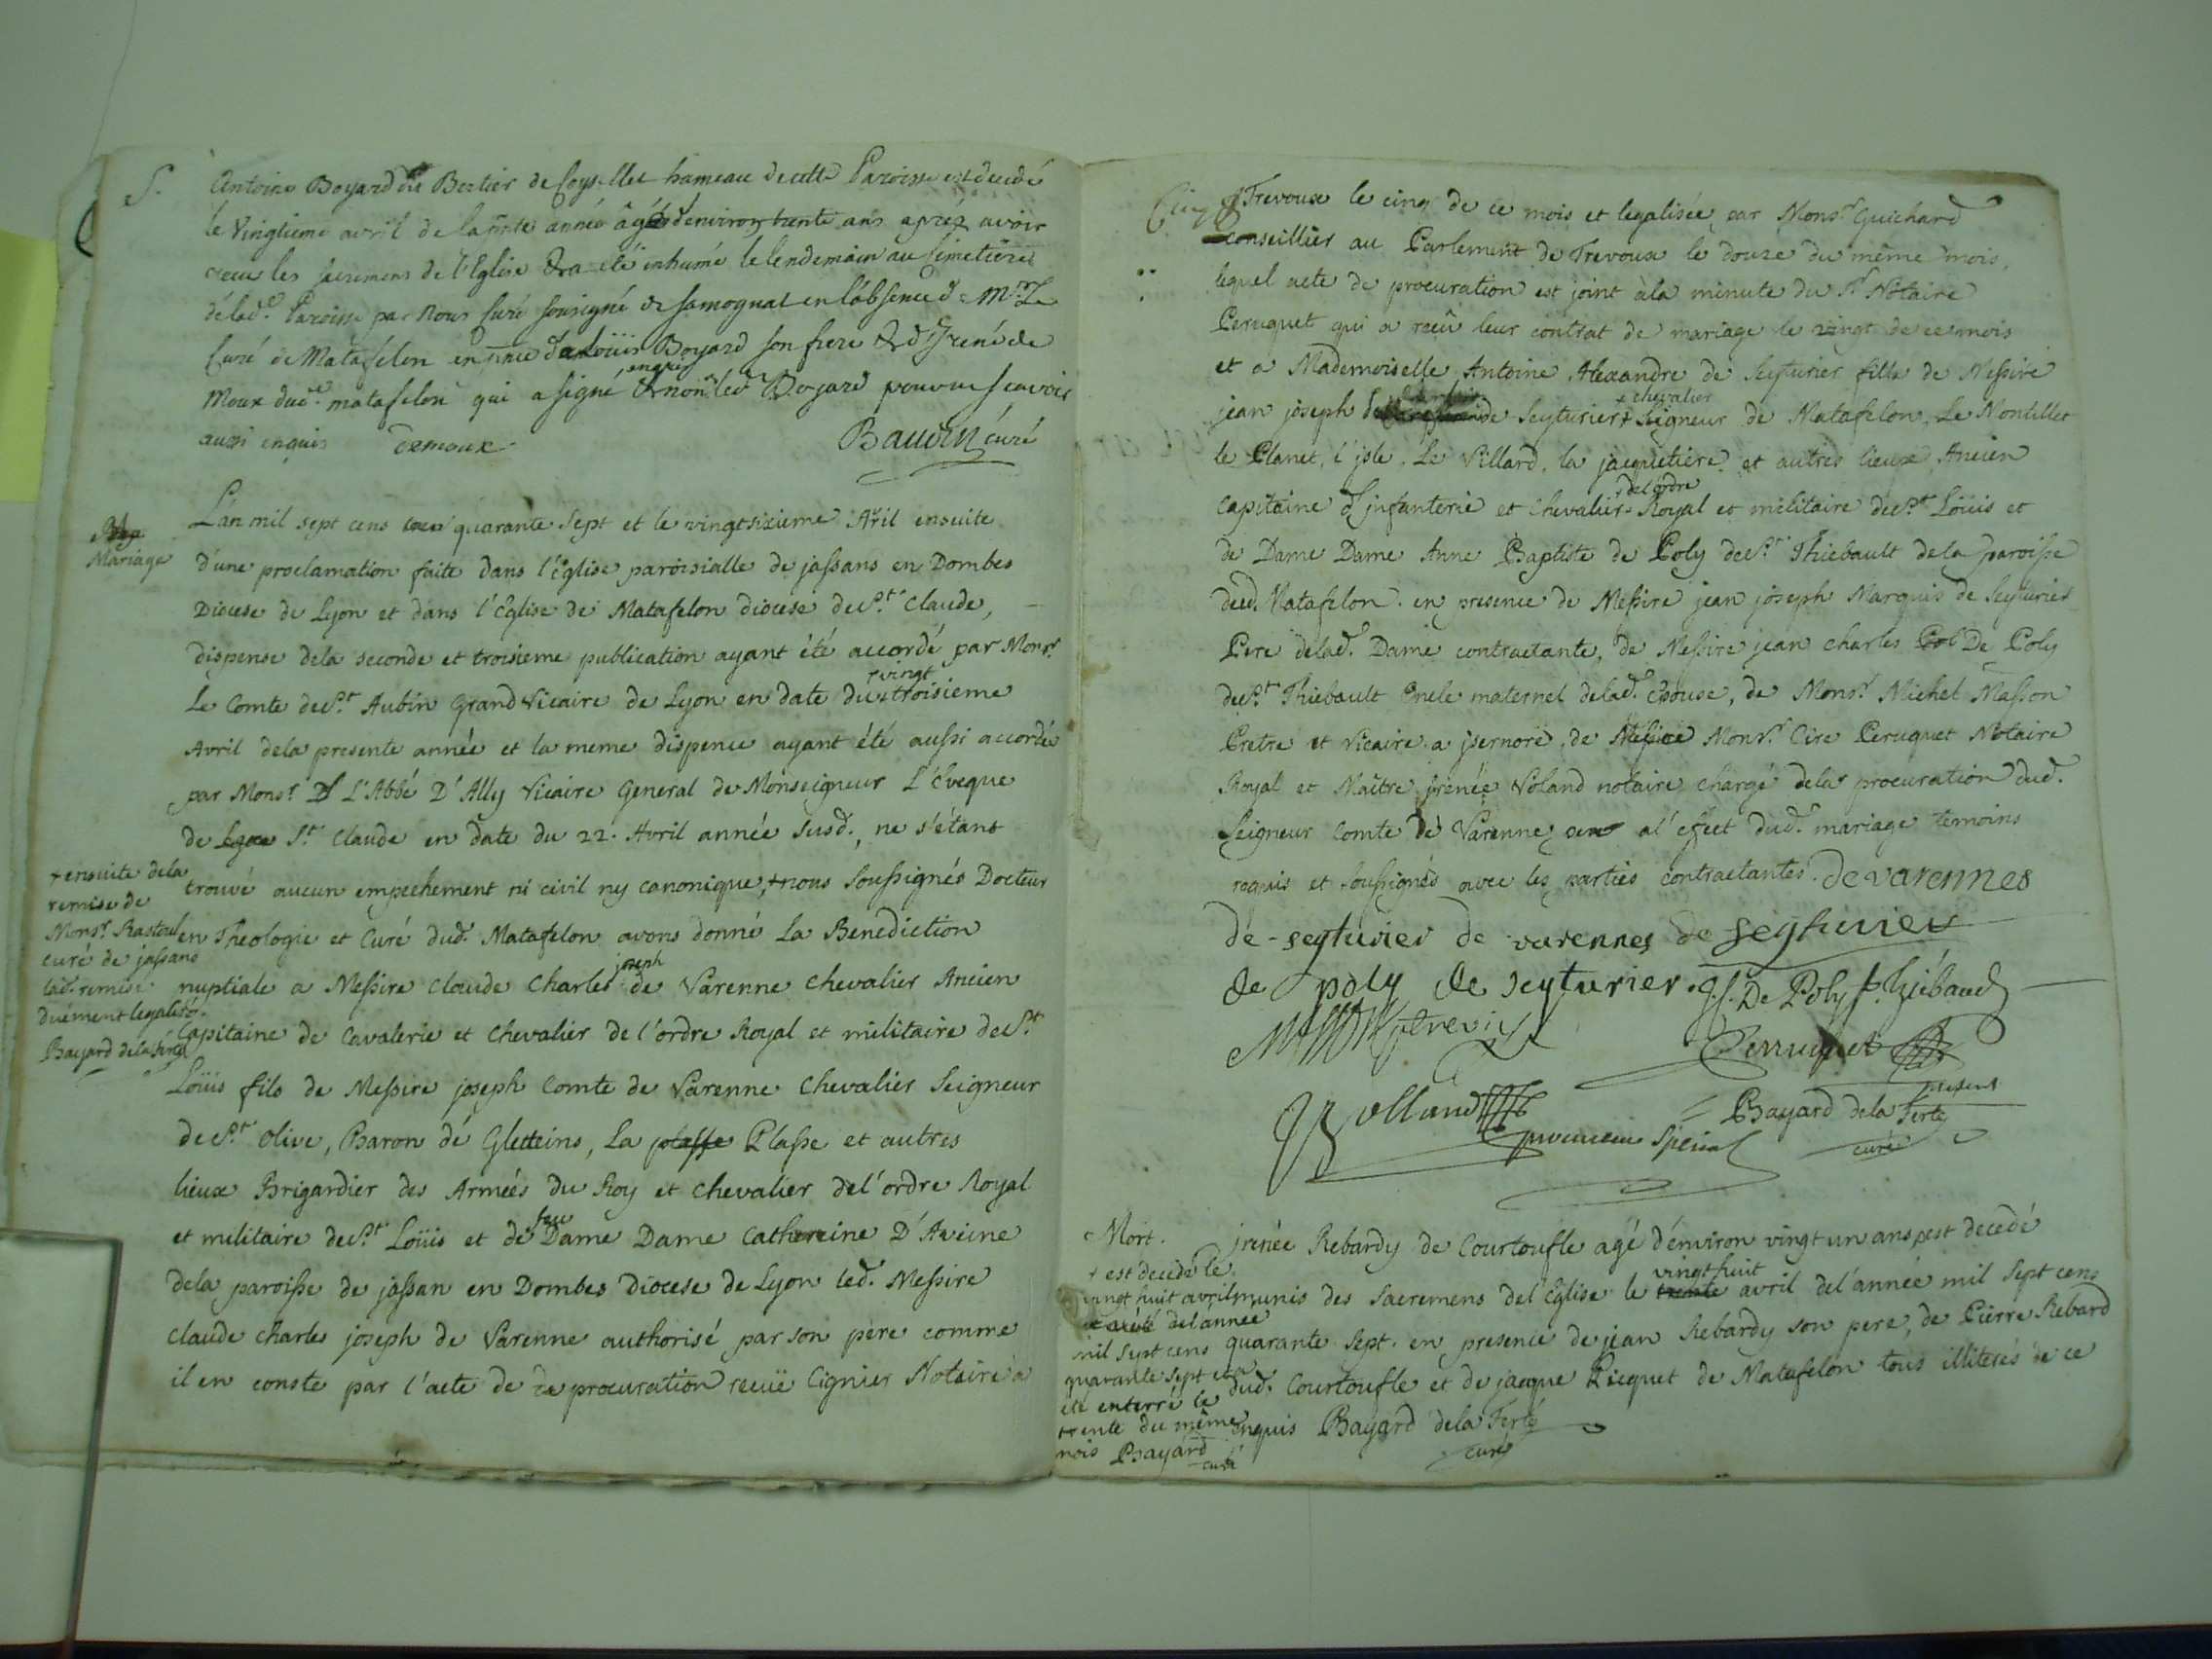 S. Antoine Boyard dit Bertier de Coysellet hameau de cette Paroisse est decedé
le Vingtieme avril de la pnte année âgé denviron trente ans après avoir
recu les sacremens de l'Eglise & a été inhumé le lendemain au Cimetiere
de lad.e Paroisse par Nous Curé sousigné de Samognat en l'absence de Mr. Le
Curé de Matafelon en pnce de Loüis Boyard son frere & d'Irené de
Moux dud.t matafelon qui a signé & non led Boyard pour ne scavoir
enquis
aussi enquis Demoux Baudin curé
Mariage
L'an mil sept cens quarante sept et le vingtsixieme Avril ensuite
d'une proclamation faite dans l'Eglise paroisialle de jassans en Dombes
Diocese de Lyon et dans l'Eglise de Matafelon diocese de St. Claude,
dispense de la seconde et troisieme publication ayant été accordé par Monsr.
Le Comte de St. Aubin Grand Vicaire de Lyon en date du + troisieme
+ vingt
Avril de la presente année et la meme dispence ayant été aussi accordée
par Monsr. L'Abbé D'Ally Vicaire General de Monseigneur L'Eveque
de Lyon St. Claude en date du 22. Avril année susd., ne s'étant
trouvé aucun empechement ni civil ny canonique, + nous soussignés Docteur
en Theologie et Curé dud. Matafelon avons donné La Benediction
nuptiale a Messire Claude Charles joseph de Varenne Chevalier Ancien
Capitaine de Cavalerie et Chevalier de l'ordre Royal et militaire de St.
Loüis fils de Messire joseph Comte de Varenne Chevalier Seigneur
de St. Olive, Baron de Gletteins, La plasse Plasse et autres
lieux Brigardier des Armées du Roy et Chevalier de l'ordre Royal
et militaire de St. Loüis et de feu Dame Dame Catherine D'Aveine
de la paroisse de jassan en Dombes Diocese de Lyon led. Messire
Claude Charles joseph de Varenne authorisé par son pere comme
il en conste par l'acte de procuration recuë Cignier Notaire a
+ ensuite de la
remise de
Monsr. Rastoul
curé de jassans
lad. remise
duement legalisé.
Bayard de la ferté
Trevoux le cinq de ce mois et legalisée par Monsr. Guichard
conseillier au Parlement de Trevoux le douze du même mois,
lequel acte de procuration est joint à la minute du Sr. Notaire
Peruquet qui a reçu leur contrat de mariage le vingt de ce mois
et a Mademoiselle Antoine Alexandre de Seyturier fille de Messire
jean joseph de Seyturier + Seigneur de Matafelon, Le Montillet
+ chevalier
le Planet, l'jsle, Le Villard, la jacquetiere et autres lieux Ancien
Capitaine d'jnfanterie et Chevalier + Royal et militaire de St. Loüis et
+ de l'ordre
de Dame Dame Anne Baptiste de Poly de St. Thiebault de la paroisse
dud. Matafelon. en presence de Messire jean joseph Marquis de Seyturier
Pere de lad. Dame contractante, de Messire jean charles Pol De Poly
de St. Thiebault Oncle maternel de lad. Epouse, de Monsr. Michel Masson
Pretre et Vicaire a jsernore, de Messire Monsr. Cire Peruquet Notaire
Royal et Maître jrenée Voland notaire chargé de la procuration dud.
Seigneur Comte de Varenne a l'effect dud. mariage temoins
requis et soussignés avec les parties contractantes. de varennes
de-seyturier de varennes de seyturier
de poly de seyturier. J.C. De Poly St. Thiébaud
Perruquet
J Volland procureur special
Bayard de la Ferté present
curé
Mort.
jrenée Rebardy de Courtoufle agé d'environ vingt un ans + est decedé
munis des Sacremens de l'Eglise le trente avril de l'année mil sept cens
vingt huit
quarante sept. en presence de jean Rebardy son pere, de Pierre Rebard
dud. Courtoufle et de jacque Picquet de Matafelon tous illiterés de ce
enquis Bayard de la Ferté
curé
+ est decidé le
vingt huit avril
de l'année
mil sept cens
quarante sept et a
été enterré le
trente du même
mois Bayard
curé